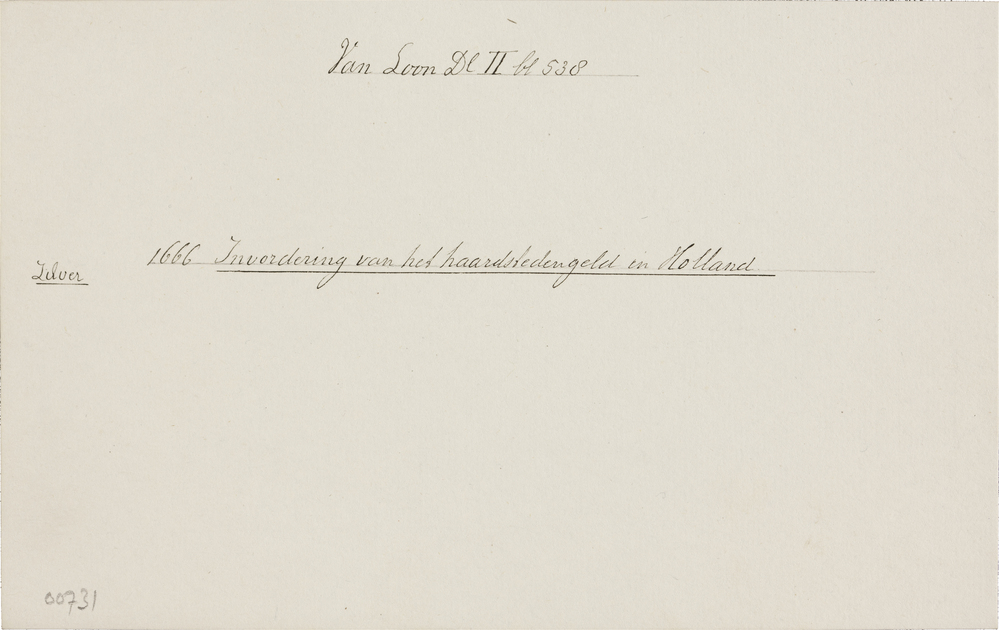 Van Loon Dl II bl 538
1666 Invordering van het haardstedengeld in Holland
Zilver
00731